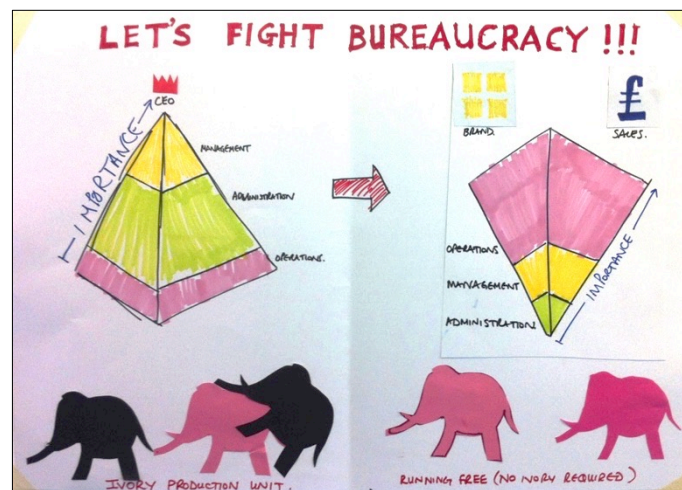 LET'S FIGHT BUREAUCRACY !!!
CEO
IMPORTANCE
MANAGEMENT
ADMINISTRATION
OPERATIONS.
BRAND.
£
SALES.
OPERATIONS
MANAGEMENT
ADMINISTRATION
IMPORTANCE
IVORY PRODUCTION UNIT.
RUNNING FREE (NO IVORY REQUIRED)